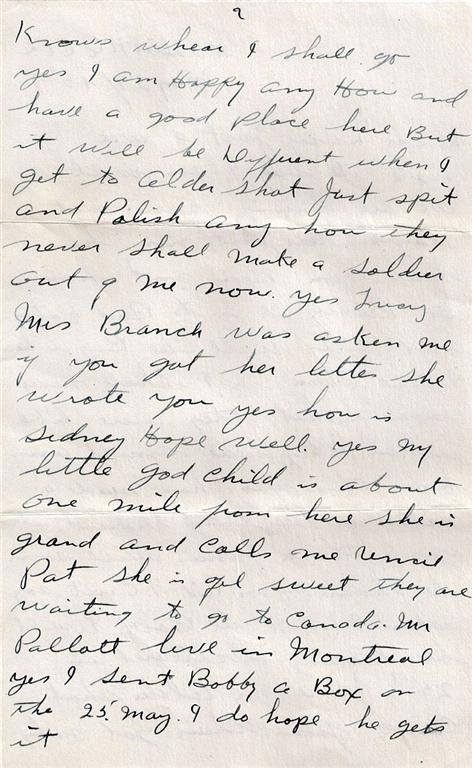 2
Knows whear I shall go
yes I am Happy any How and
have a good Place here But
it will be Dyffrent when I
get to Alder Shot Just spit
and Polish any how they
never shall make a soldier
out of me now. yes Lucy
Mrs Branch was asken me
if you got her letter she
wrote you yes how is
Sidney Hope well. yes my
little god child is about
one mile from here she is
grand and Calls me Uncil
Pat she is sweet they are
waiting to go to Canada. Mr
Pallott live in Montreal
yes I sent Bobby a Box on
the 25. May. I do hope he gets
it